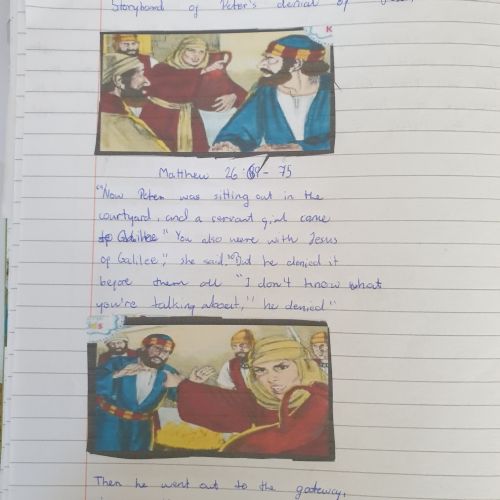 Storyboard of Peter's denial of
K
Matthew 26:69 - 75
"69 Now Peter was sitting out in the
courtyard, and a servant girl came
to Galilee "You also were with Jesus
of Galilee," she said. 70 But he denied it
before them all "I don't know what
you're talking about," he denied"
Then he went out to the gateway,